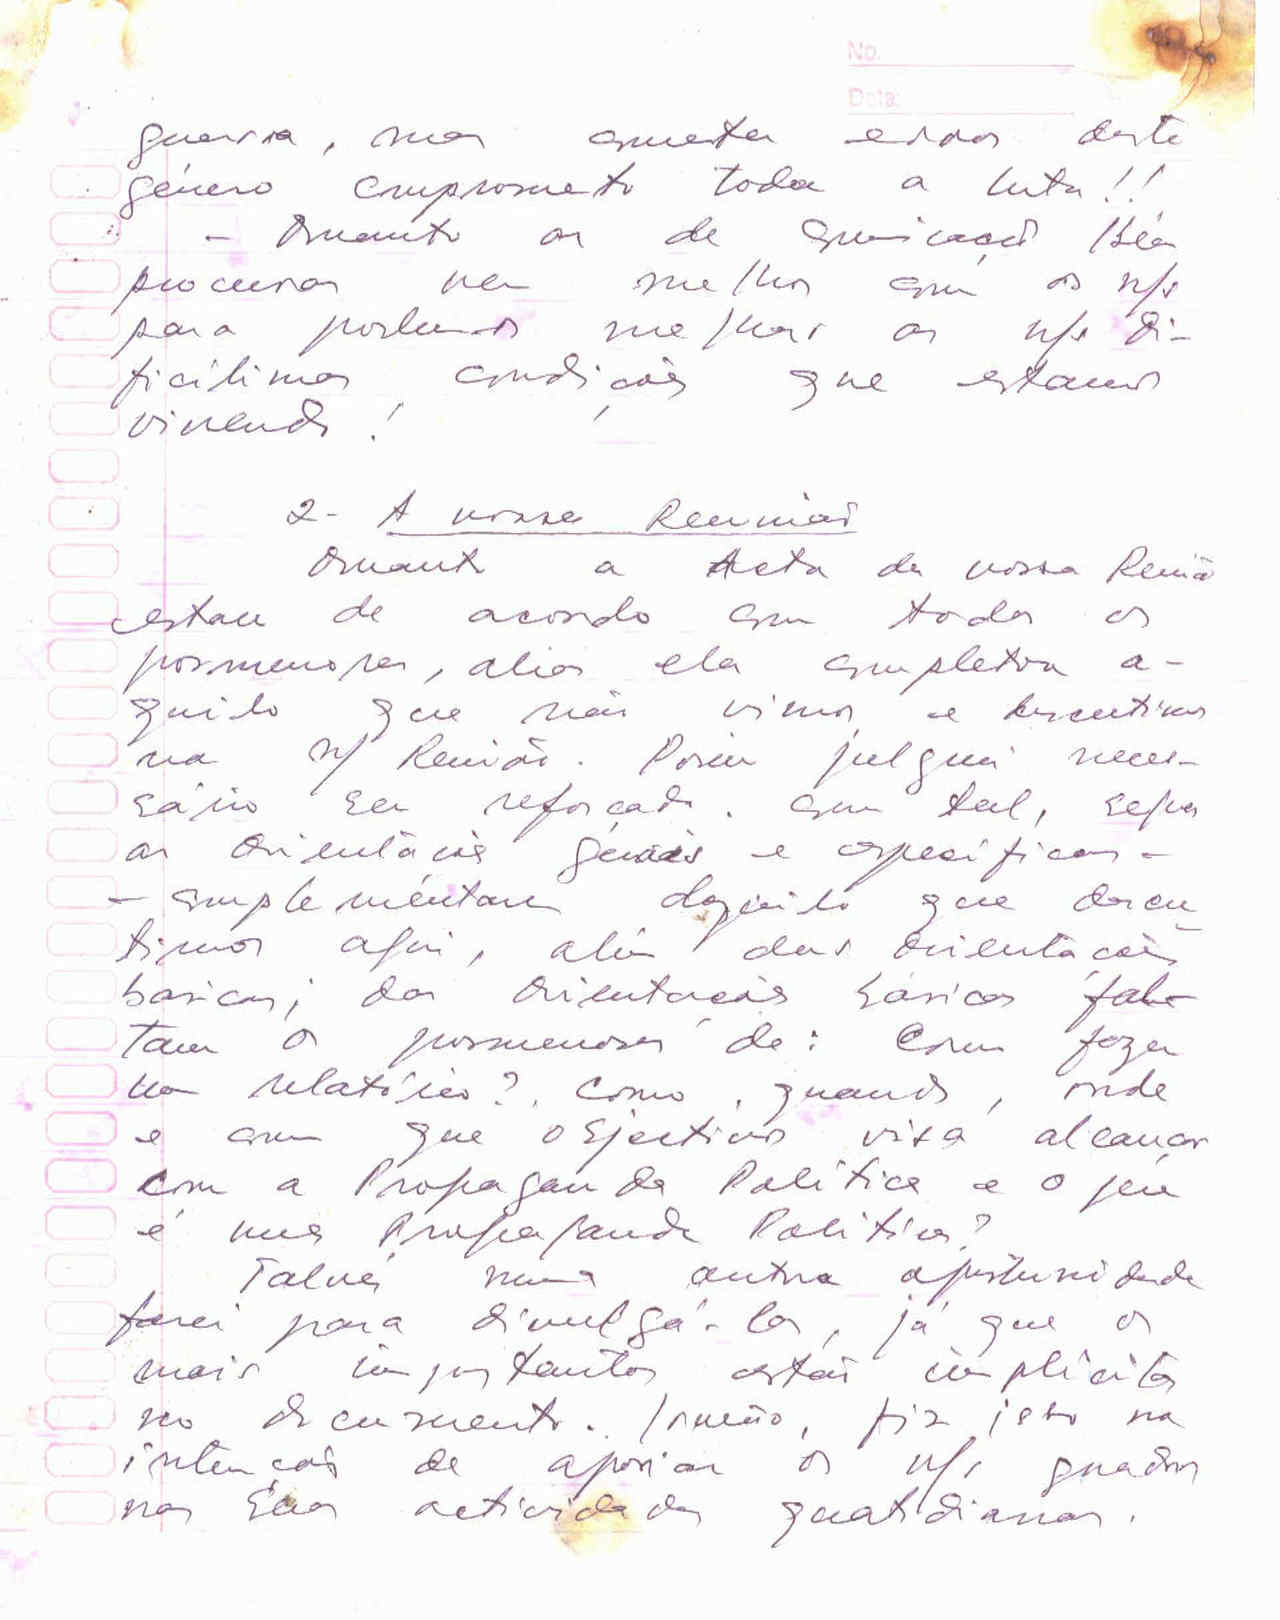 No.
Data:
guerra, mas cometer erros deste
género compromete toda a luta!!
- Quanto as de comunicação
procurar ver melhor com os n/s
para podermos melhorar as n/s di-
ficilimas condições que estamos
vivendo!
2- A nossa Reunião
Quanto a Acta da nossa Reunião
estou de acordo com todos os
pormenores, alias ela completou a-
quilo que nós vimos e discutimos
na n/ Reunião. Porém julguei neces-
sário ser reforçado. Com tal, segue
as Orientações gerais e especificas -
- complementares daquilo que discu
timos aqui, além das orientações
basicas; das Orientações básicas fal-
tam os pormenores de: Como fazer
um relatório?. Como, quando, onde
e com que objectivos visa alcançar
com a Propaganda Politica e o que
é uma Propaganda Politica?
Talvés numa outra oportunidade
farei para divulgá-los, já que os
mais importantes estão implicitos
no documento. Irmão, fiz isso na
intenção de apoiar os n/s quadros
nas suas actividades quotidianas.